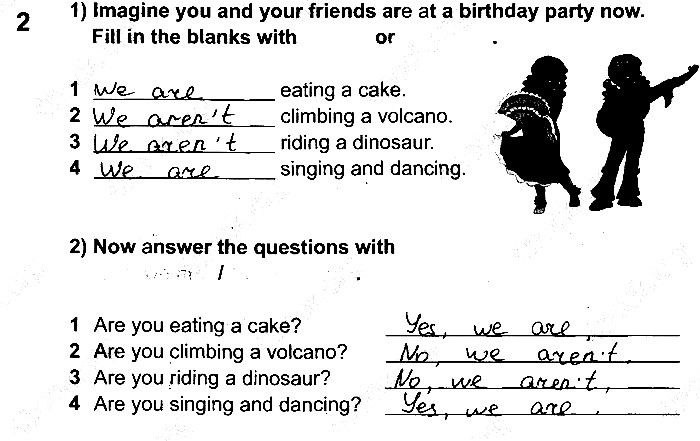 2
1) Imagine you and your friends are at a birthday party now.
Fill in the blanks with or .
1 We are eating a cake.
2 We aren't climbing a volcano.
3 We aren't riding a dinosaur.
4 We are singing and dancing.
2) Now answer the questions with
/ .
1 Are you eating a cake? Yes, we are.
2 Are you climbing a volcano? No, we aren't.
3 Are you riding a dinosaur? No, we aren't,
4 Are you singing and dancing? Yes, we are.